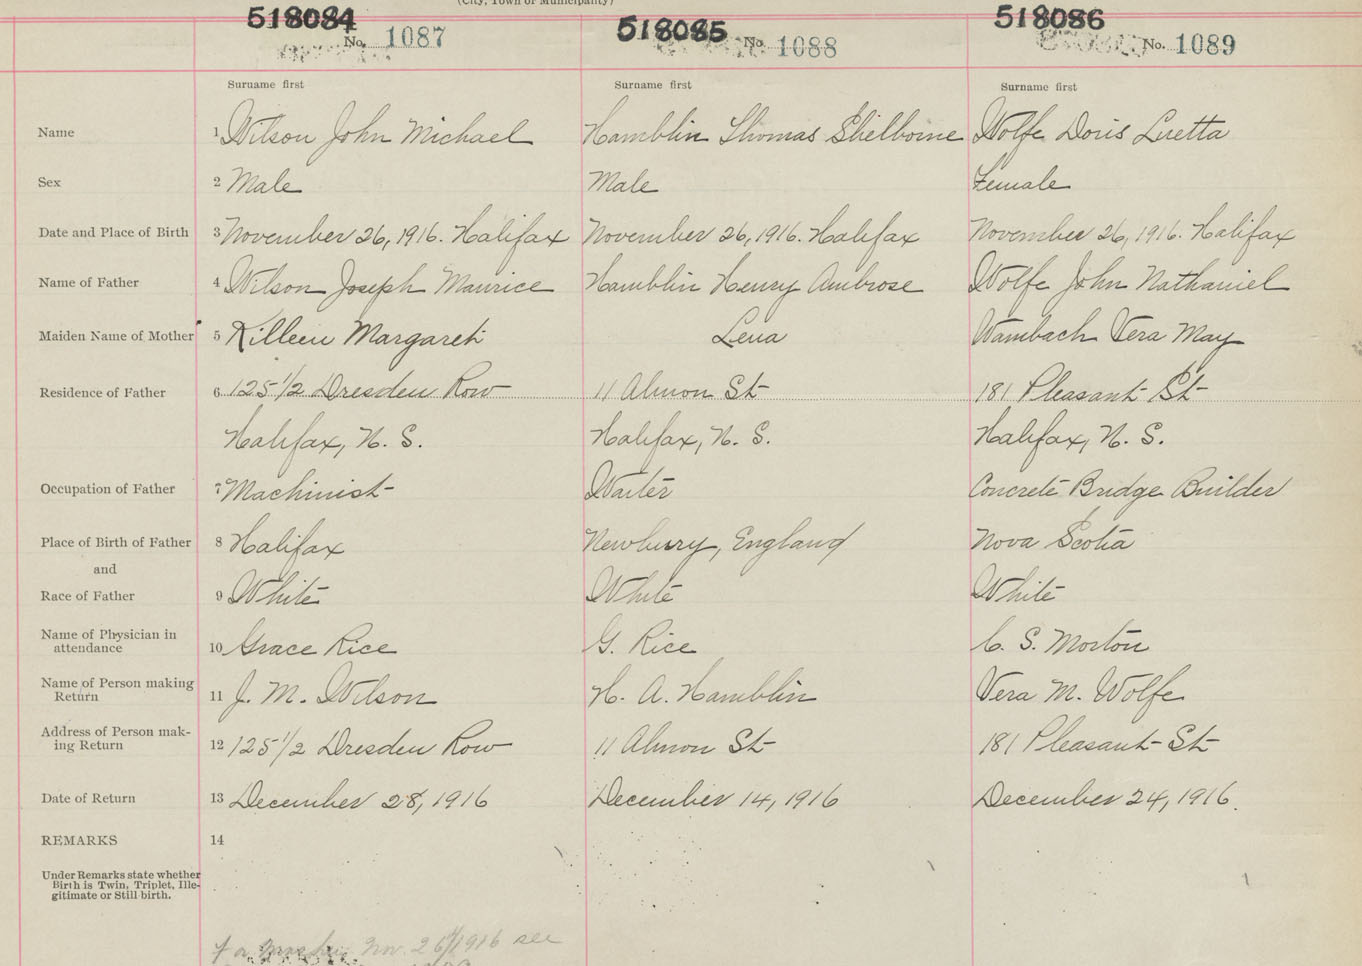 (City, Town or Municipality)
518084 518085 518086
No. 1087 No. 1088 No. 1089
Surname first Surname first Surname first
Name 1 Wilson John Michael Hamblin Thomas Shelborne Wolfe Doris Luetta
Sex 2 Male Male Female
Date and Place of Birth 3 November 26, 1916. Halifax November 26, 1916. Halifax November 26, 1916. Halifax
Name of Father 4 Wilson Joseph Maurice Hamblin Henry Ambrose Wolfe John Nathaniel
Maiden Name of Mother 5 Killeen Margaret Lena Wambach Vera May
Residence of Father 6 125 1/2 Dresden Row 11 Almon St 181 Pleasant St
Halifax, N. S. Halifax, N. S. Halifax, N. S.
Occupation of Father 7 Machinist Waiter Concrete Bridge Builder
Place of Birth of Father 8 Halifax Newbury, England Nova Scotia
and
Race of Father 9 White White White
Name of Physician in
attendance 10 Grace Rice G. Rice C. S. Morton
Name of Person making
Return 11 J. M. Wilson H. A. Hamblin Vera M. Wolfe
Address of Person mak-
ing Return 12 125 1/2 Dresden Row 11 Almon St 181 Pleasant St
Date of Return 13 December 28, 1916 December 14, 1916 December 24, 1916.
REMARKS 14
Under Remarks state whether
Birth is Twin, Triplet, Ille-
gitimate or Still birth.
Nov. 26/1916 see